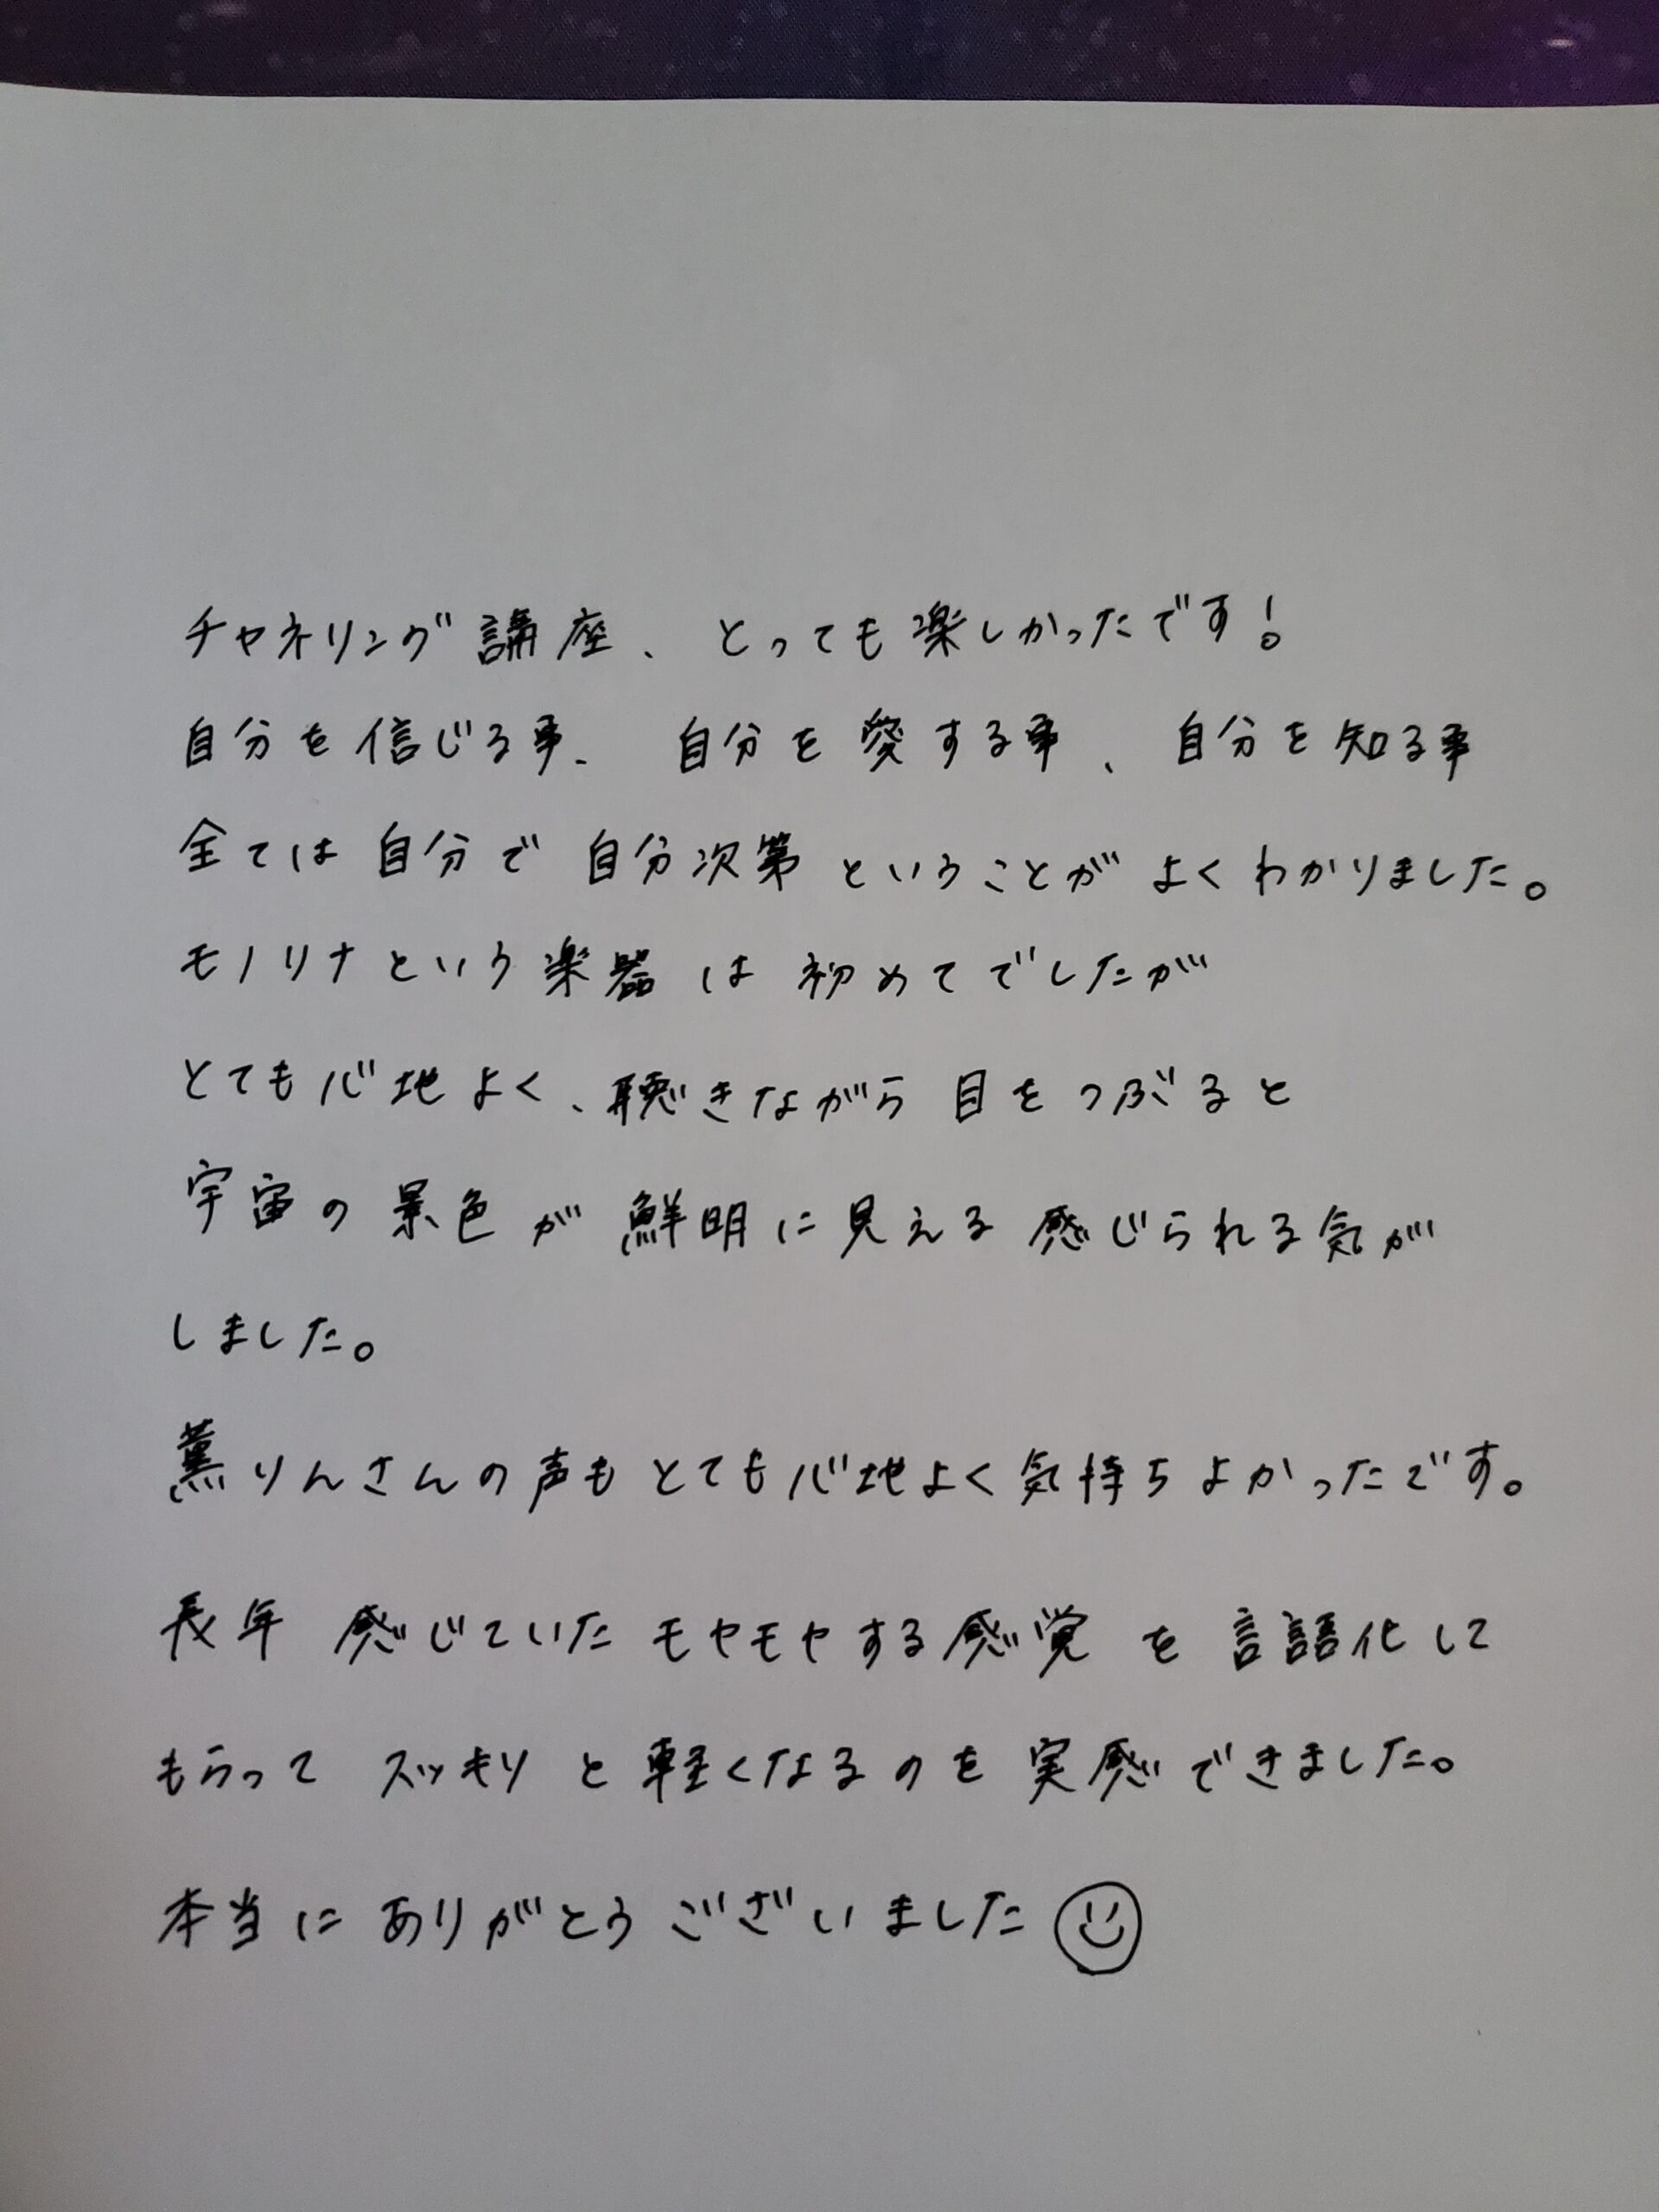 チャネリング講座、とっても楽しかったです!
自分を信じる事、自分を愛する事、自分を知る事
全ては自分で自分次第ということがよくわかりました。
モノリナという楽器は初めてでしたが
とても心地よく、聴きながら目をつぶると
宇宙の景色が鮮明に見える感じられる気が
しました。
薫りんさんの声もとても心地よく気持ちよかったです。
長年感じていたモヤモヤする感覚を言語化して
もらってスッキリと軽くなるのを実感できました。
本当にありがとうございました